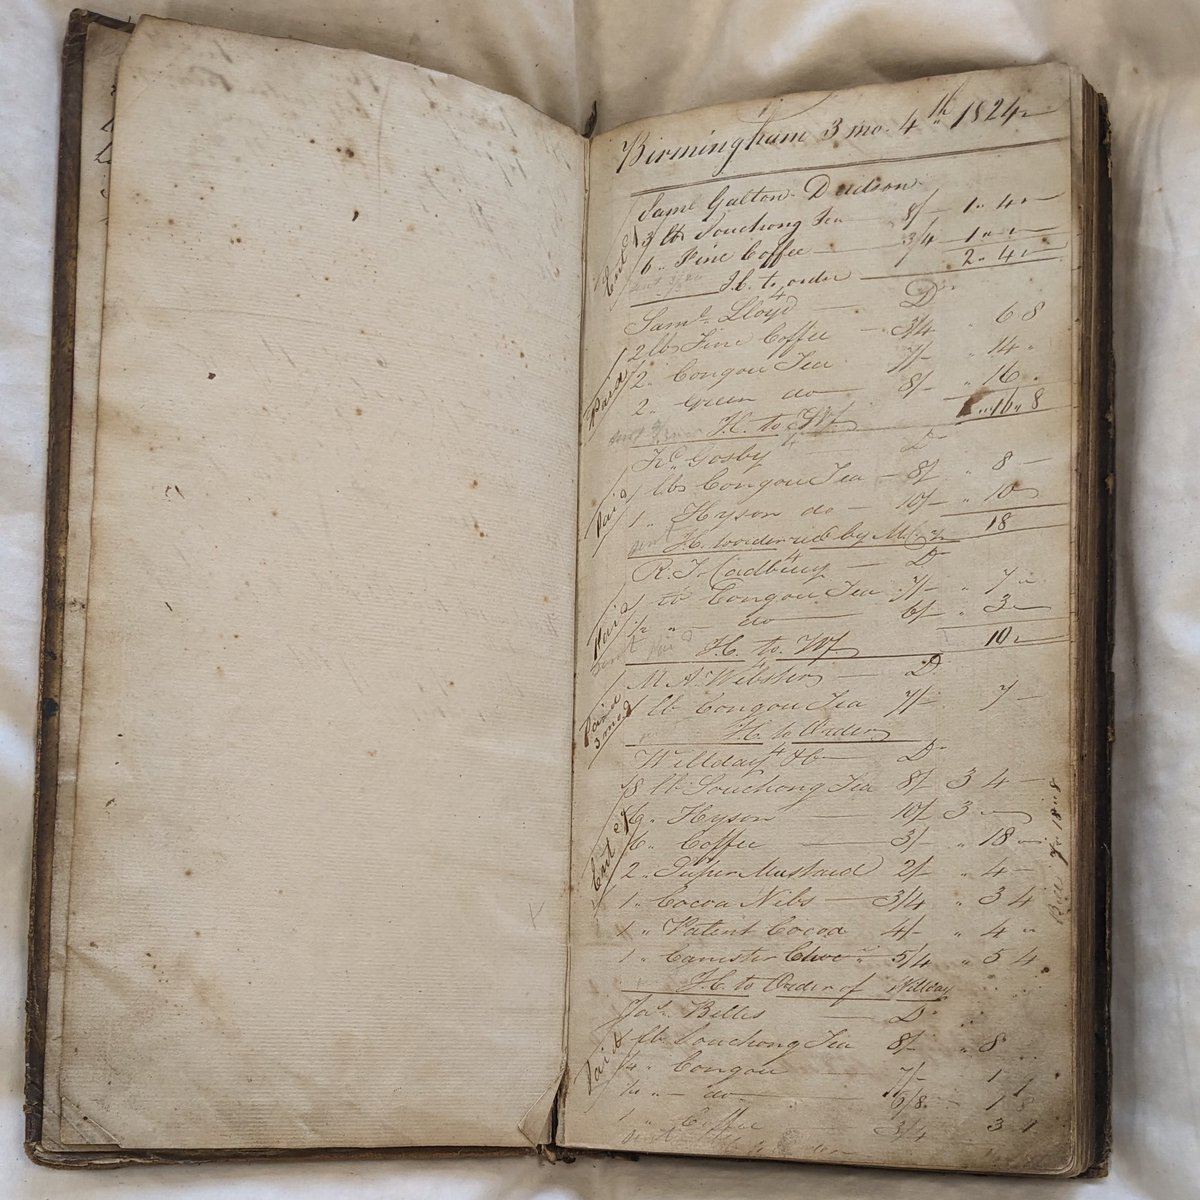 Birmingham 3 mo. 4th 1824
Saml Galton Dudson
3 lb Souchong Tea 8/- 1 " 4 " -
Entd 6 " Fine Coffee 3/4 1 " " -
2 " 4 " -
JC. to order
Saml Lloyd 4 Dr
2 lb Fine Coffee 3/4 " 6 8
Paid 2 " Congou Tea 7/- " 14 "
2 " Green do 8/- " 16 "
1 " 16 " 8
JC. to
Gosby 4 Dr
1 lb Congou Tea 8/- " 8 -
Paid 1 " Hyson do 10/- " 10
18
JC. by
R. T. Cadbury 4 Dr
1 lb Congou Tea 7/- " 7 "
Paid 1/2 " - do 6/- " 3 -
10 -
JC. to
M A Webster 4 Dr
Paid 3 mo. 1 lb Congou Tea 7/- 7 -
JC. to Order
Willday & Co 4 Dr
8 lb Souchong Tea 8/- 3 4 -
6 " Hyson 10/- 3 " -
Entd 6 " Coffee 3/- " 18 -
2 " Super Mustard 2/- " 4 -
1 " Cocoa Nibs 3/4 " 3 4
1 " Patent Cocoa 4/- " 4 "
1 " Canister Choc 5/4 " 5 4
JC. to Order of Willday
Jas. Betts Dr
Paid 1 lb Souchong Tea 8/- " 8
1/4 " Congou 7/- 1
1/4 " - do 6/8 - 1 8
1 " Coffee 3/4 3 4